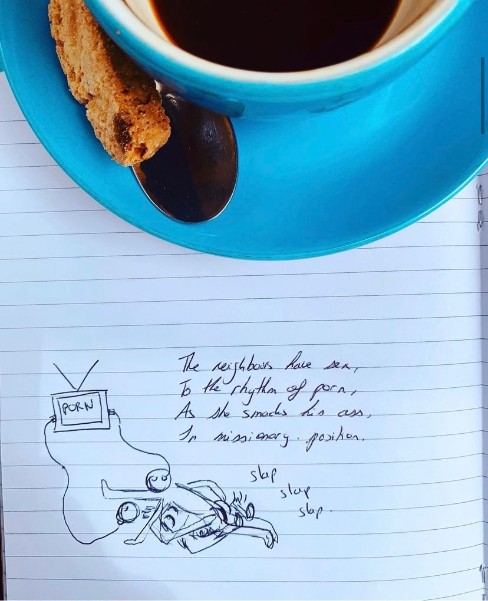 The neighbours have sex,
To the rhythm of porn,
As she smacks his ass,
In missionary position.
PORN
slap
slap
slap.